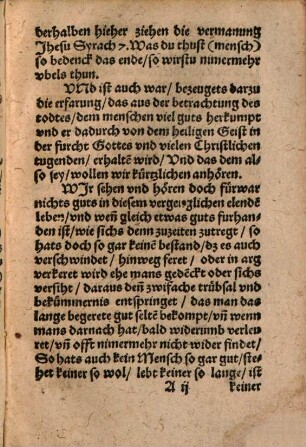 derhalben hieher ziehen die vermanung
Jhesu Syrach 7. Was du thust (mensch)
so bedenck das ende/ so wirstu nimermehr
vbels thun.
VNd ist auch war/ bezeugets darzu
die erfarung/ das aus der betrachtung des
todtes/ dem menschen viel guts herkumpt
vnd er dadurch von dem heiligen Geist in
der furcht Gottes vnd vielen Christlichen
tugenden/ erhaltē wird/ Vnd das dem al-
so sey/ wollen wir kürtzlichen anhören.
WJr sehen vnd hören doch fürwar
nichts guts in diesem vergenglichen elendē
leben/ vnd weñ gleich etwas guts furhan-
den ist/ wie sichs denn zuzeiten zutregt/ so
hats doch so gar keinē bestand/ dz es auch
verschwindet/ hinweg feret/ oder in arg
verkeret wird ehe mans gedēckt oder sichs
versiht/ daraus deñ zwifache trübsal vnd
bekům̃ernis entspringet/ das man das
lange begerete gut seltē bekompt/ vñ wenn
mans darnach hat/ bald widerumb verleu-
ret/ vñ offt nimermehr nicht wider findet/
So hats auch kein Mensch so gar gut/ ste-
het keiner so wol/ lebt keiner so lange/ ist
A ij keiner